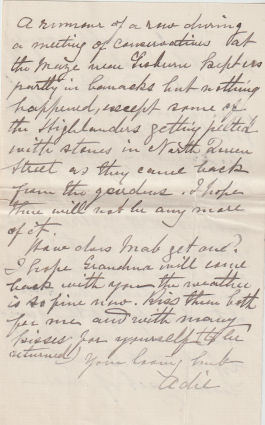 A rumour of a row during
a meeting of conservatives at
the Maze near Lisburn kept us
partly in barracks but nothing
happened, except some of
the Highlanders getting pelted
with stones in North Queen
Street as they came back
from the gardens. I hope
there will not be any more
of it.
How does Mab get one?
I hope Grandma will come
back with you the weather
is so fine now. Kiss them both
for me and with many
kisses for yourself (to be
returned) Your loving hub
Adie